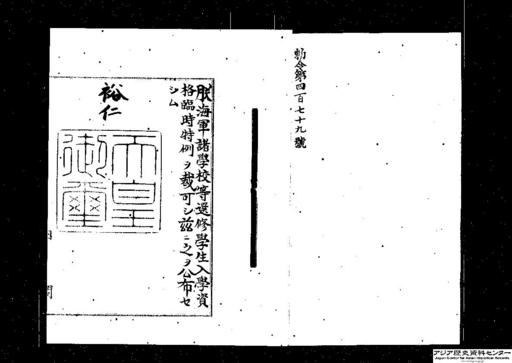 勅令第四百七十九號
朕海軍諸學校等選修學生入學資
格臨時特例ヲ裁可シ茲ニ之ヲ公布セ
シム
裕仁
天皇
御璽
内閣
アジア歴史資料センター
Japan Center for Asian Historical Records